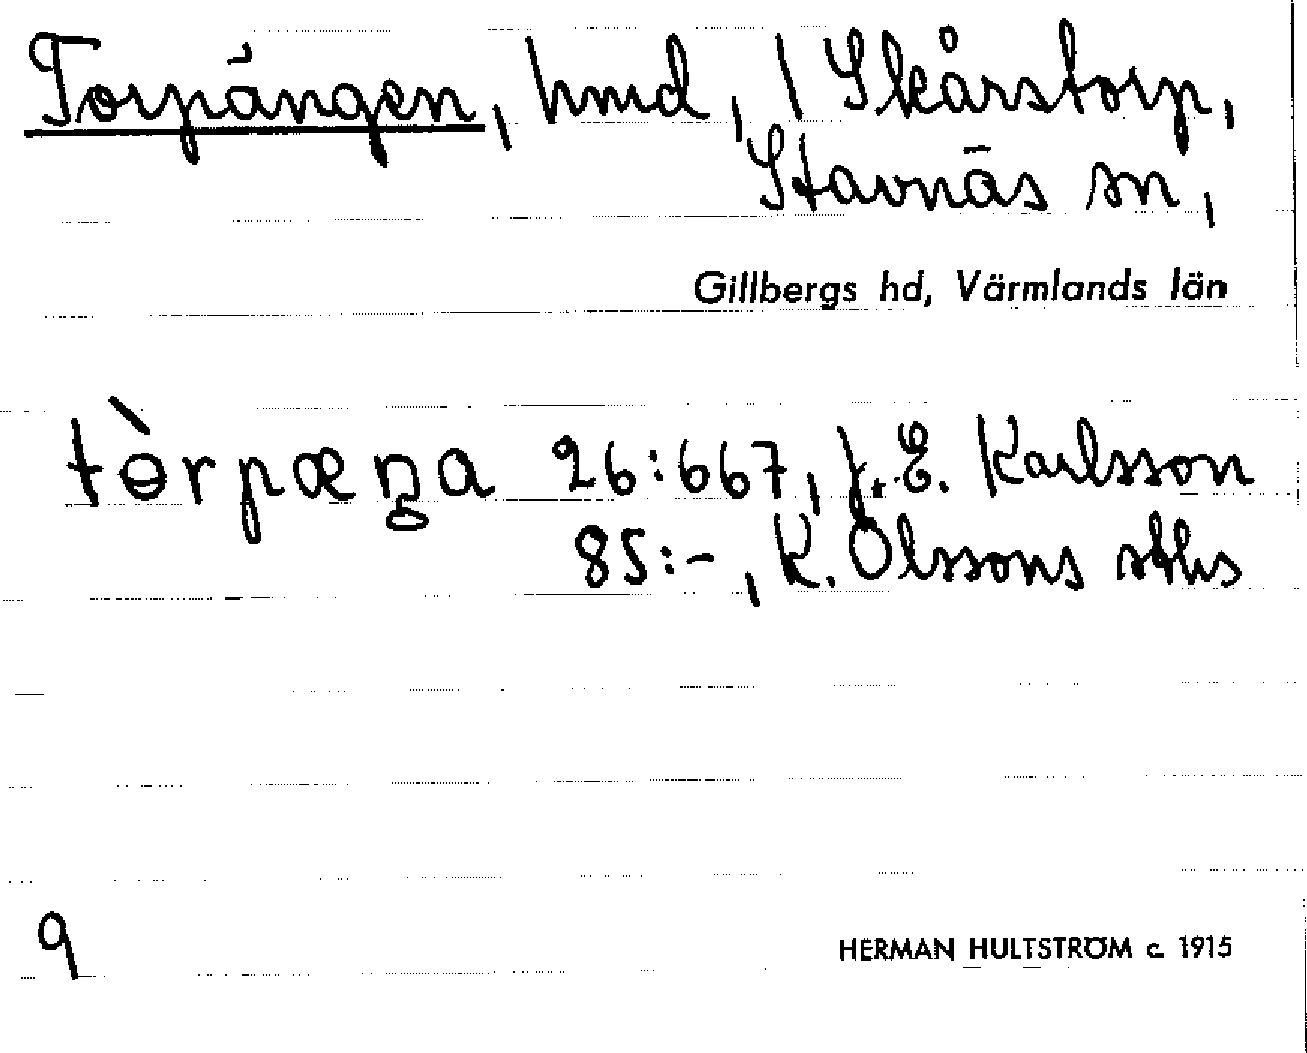 Torpängen, hmd, 1 Skårstorp,
Stavnäs sn,
Gillbergs hd, Värmlands län
tɵ̀rpæŋa 26:667, J. E. Karlsson
85:-, K. Olssons stbhs
9
HERMAN HULTSTRÖM c. 1915